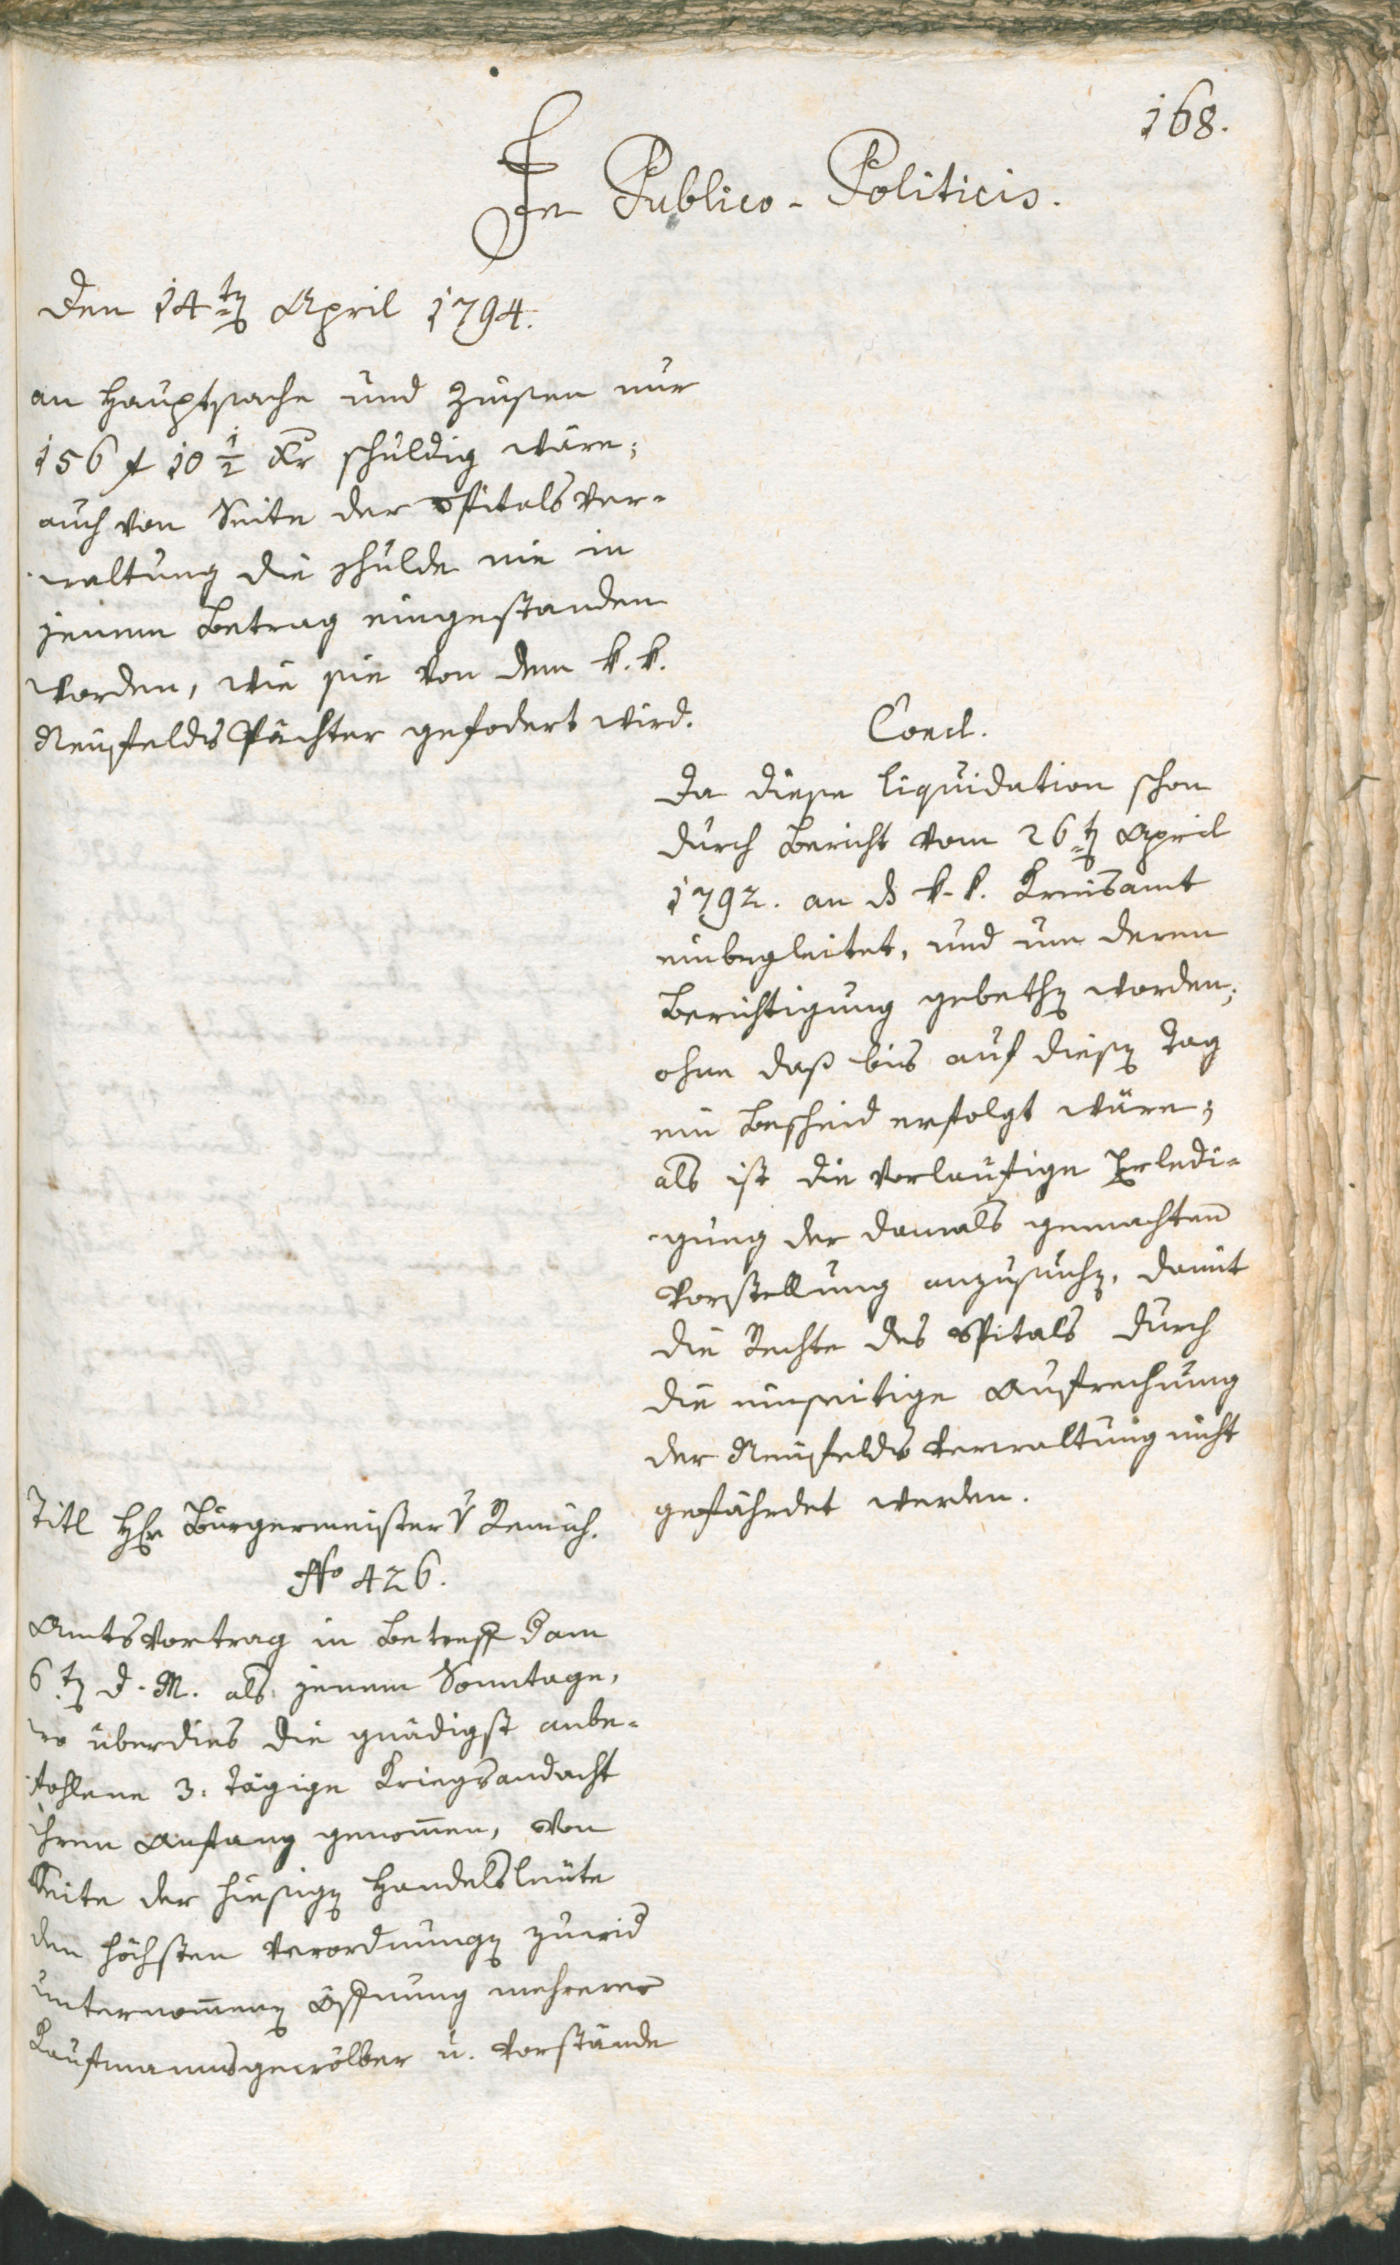 168.
In Publico-Politicis.
Den 14ten April 1794.
an Hauptsache und Zinsen nur
156 f 10 1/2 Xr schuldig wäre;
auch von Seite der Spitals Ver-
waltung die Schulde nie in
jenem Betrag eingestanden
worden, wie sie von dem k. k.
Neufelds Pächter gefodert wird.
Concl.
Da diese Liquidation schon
durch Bericht vom 26ten April
1792. an d k. k. Kreisamt
einbegleitet, und um deren
Berichtigung gebethen worden;
ohne daß bis auf diesen Tag
ein Bescheid erfolgt wäre;
als ist die vorlaufige Erledi-
gung der damals gemachten
Vorstellung anzusuchen, damit
die Rechte des Spitals durch
die einseitige Aufrechnung
der Neufelds Verwaltung nicht
gefährdet werden.
Titl Hr Bürgermeister v
No 426.
Amtsvortrag in Betreff dam
6ten d. M. als jenem Sonntage,
wo überdies die gnädigst anbe-
fohlene 3. tägige Kriegsandacht
ihren Anfang genomen, von
Seite der hiesigen Handelsleute
den höchsten Verordnungen zuwid
unternomenen Öffnung mehrerer
Kaufmannsgewölber u. Vorstände